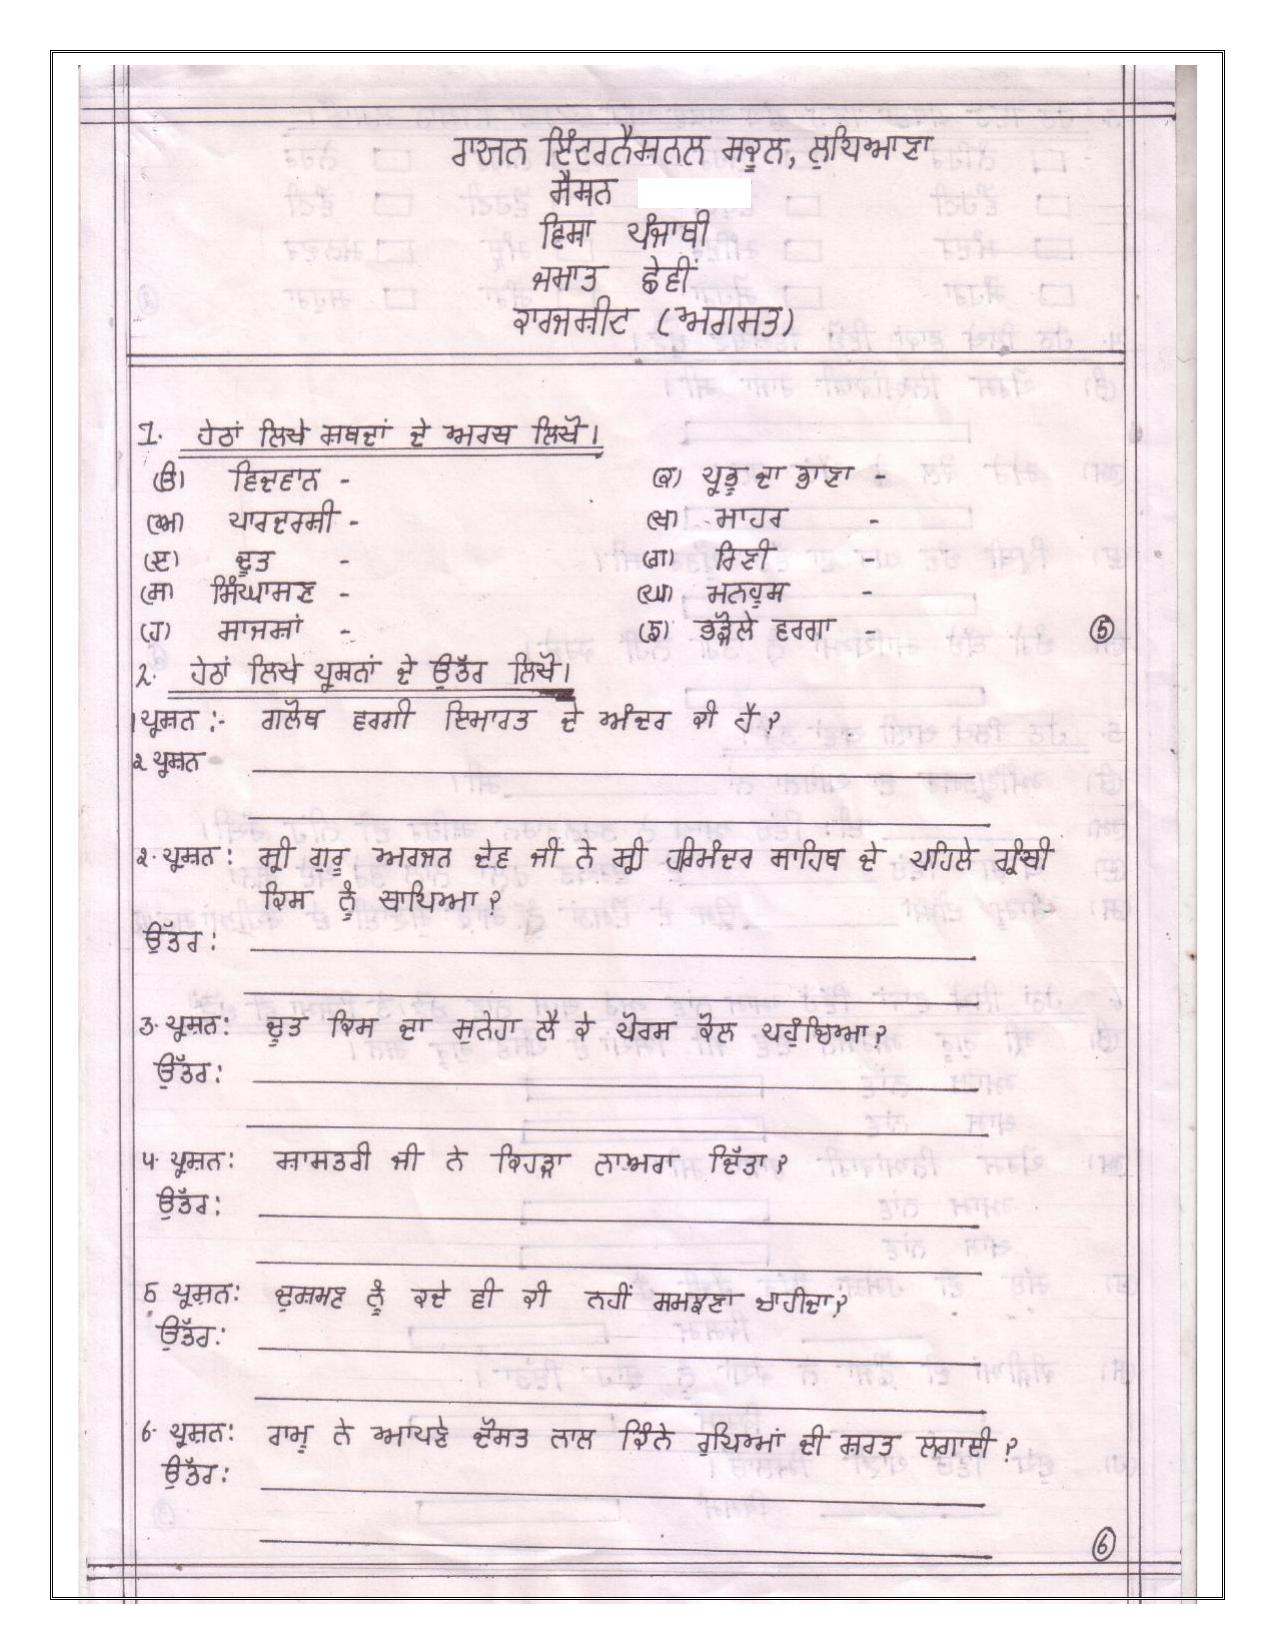 ਰਾਯਨ ਇੰਟਰਨੈਸ਼ਨਲ ਸਕੂਲ, ਲੁਧਿਆਣਾ
ਸੈਸ਼ਨ
ਵਿਸ਼ਾ ਪੰਜਾਬੀ
ਜਮਾਤ ਛੇਵੀਂ
ਕਾਰਜਸ਼ੀਟ (ਅਗਸਤ)
1. ਹੇਠਾਂ ਲਿਖੇ ਸ਼ਬਦਾਂ ਦੇ ਅਰਥ ਲਿਖੋ।
(ੳ) ਵਿਦਵਾਨ - (ਕ) ਪ੍ਰਭੂ ਦਾ ਭਾਣਾ -
(ਅ) ਪਾਰਦਰਸ਼ੀ - (ਖ) ਮਾਹਰ -
(ੲ) ਦੂਤ - (ਗ) ਰਿਣੀ -
(ਸ) ਸਿੰਘਾਸਣ - (ਘ) ਮਨਹੂਸ -
(ਹ) ਸਾਜਸ਼ਾਂ - (ਙ) ਭੜੋਲੇ ਵਰਗਾ 5
2. ਹੇਠਾਂ ਲਿਖੇ ਪ੍ਰਸ਼ਨਾਂ ਦੇ ਉੱਤਰ ਲਿਖੋ।
1 ਪ੍ਰਸ਼ਨ :- ਗਲੋਬ ਵਰਗੀ ਇਮਾਰਤ ਦੇ ਅੰਦਰ ਕੀ ਹੈ?
2 ਪ੍ਰਸ਼ਨ
2. ਪ੍ਰਸ਼ਨ: ਸ੍ਰੀ ਗੁਰੂ ਅਰਜਨ ਦੇਵ ਜੀ ਨੇ ਸ੍ਰੀ ਹਰਿਮੰਦਰ ਸਾਹਿਬ ਦੇ ਪਹਿਲੇ ਗ੍ਰੰਥੀ
ਕਿਸ ਨੂੰ ਥਾਪਿਆ?
ਉੱਤਰ:
3. ਪ੍ਰਸ਼ਨ: ਦੂਤ ਕਿਸ ਦਾ ਸੁਨੇਹਾ ਲੈ ਕੇ ਪੋਰਸ ਕੋਲ ਪਹੁੰਚਿਆ?
ਉੱਤਰ:
4. ਪ੍ਰਸ਼ਨ: ਸ਼ਾਸਤਰੀ ਜੀ ਨੇ ਕਿਹੜਾ ਨਾਅਰਾ ਦਿੱਤਾ?
ਉੱਤਰ:
5 ਪ੍ਰਸ਼ਨ: ਦੁਸ਼ਮਣ ਨੂੰ ਕਦੇ ਵੀ ਕੀ ਨਹੀਂ ਸਮਝਣਾ ਚਾਹੀਦਾ?
ਉੱਤਰ:
6. ਪ੍ਰਸ਼ਨ: ਰਾਮੂ ਨੇ ਆਪਣੇ ਦੋਸਤ ਨਾਲ ਕਿੰਨੇ ਰੁਪਿਆਂ ਦੀ ਸ਼ਰਤ ਲਗਾਈ?
ਉੱਤਰ:
6